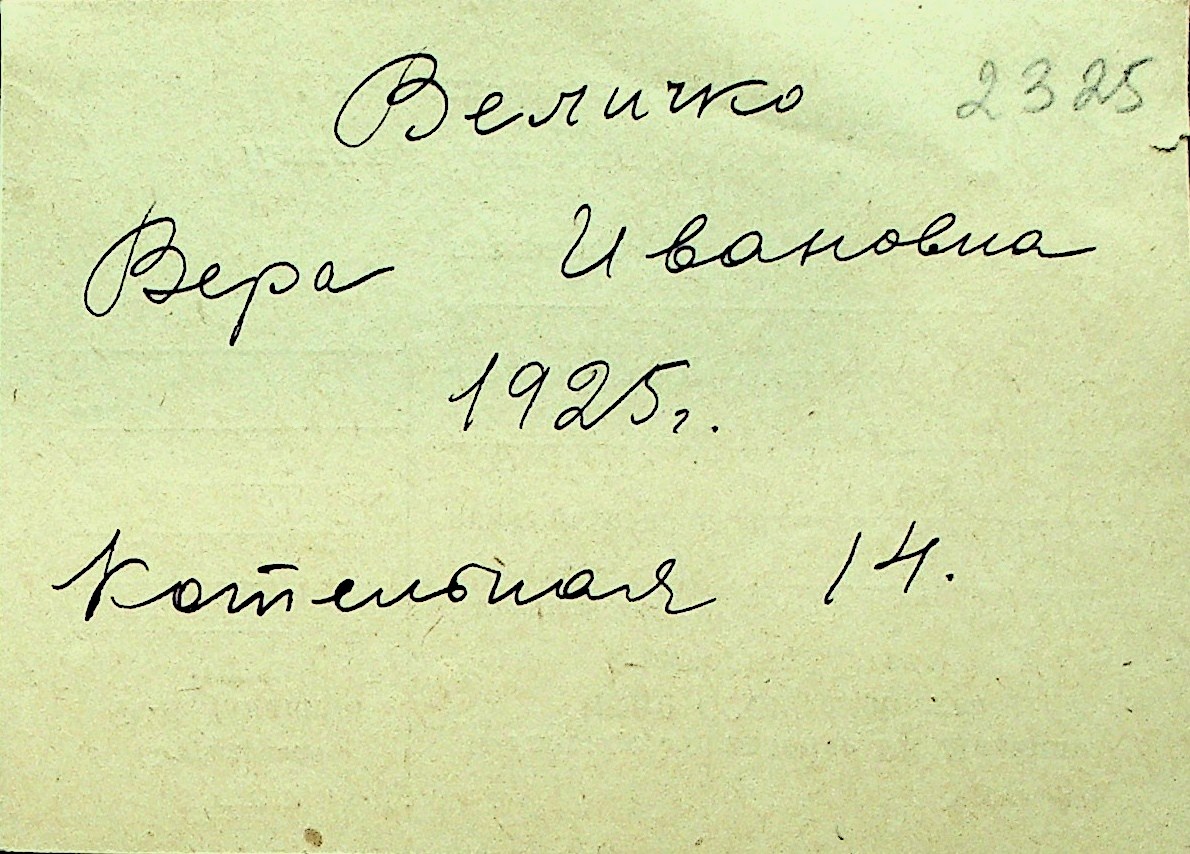 Величко 2325
Вера Ивановна
1925г.
Котельная 14.